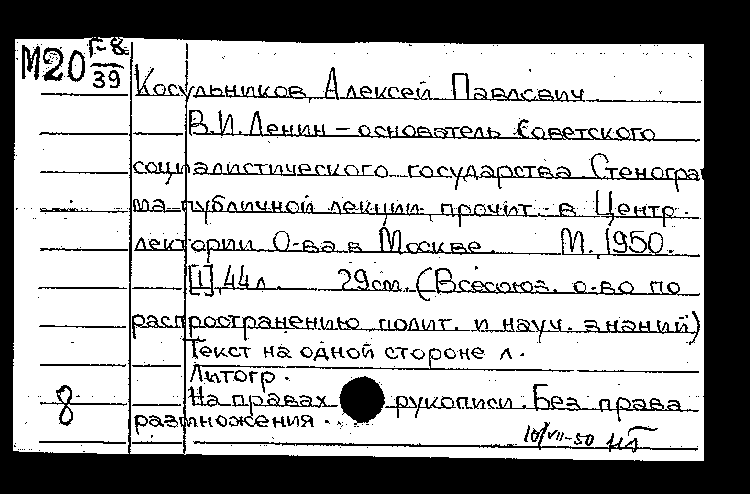 М20 Г-8
39
Косульников, Алексей Павлович
В.И. Ленин – основатель Советского
социалистического государства Стеногра
ма публичной лекции, прочит. в Центр.
лектории О-ва в Москве. М., 1950.
[1], 44 л. 29 см. (Всесоюз. о-во по
распространению полит. и науч. знаний)
Текст на одной стороне л.
Литогр.
На правах рукописи. Без права
8
размножения.
10/VII-50